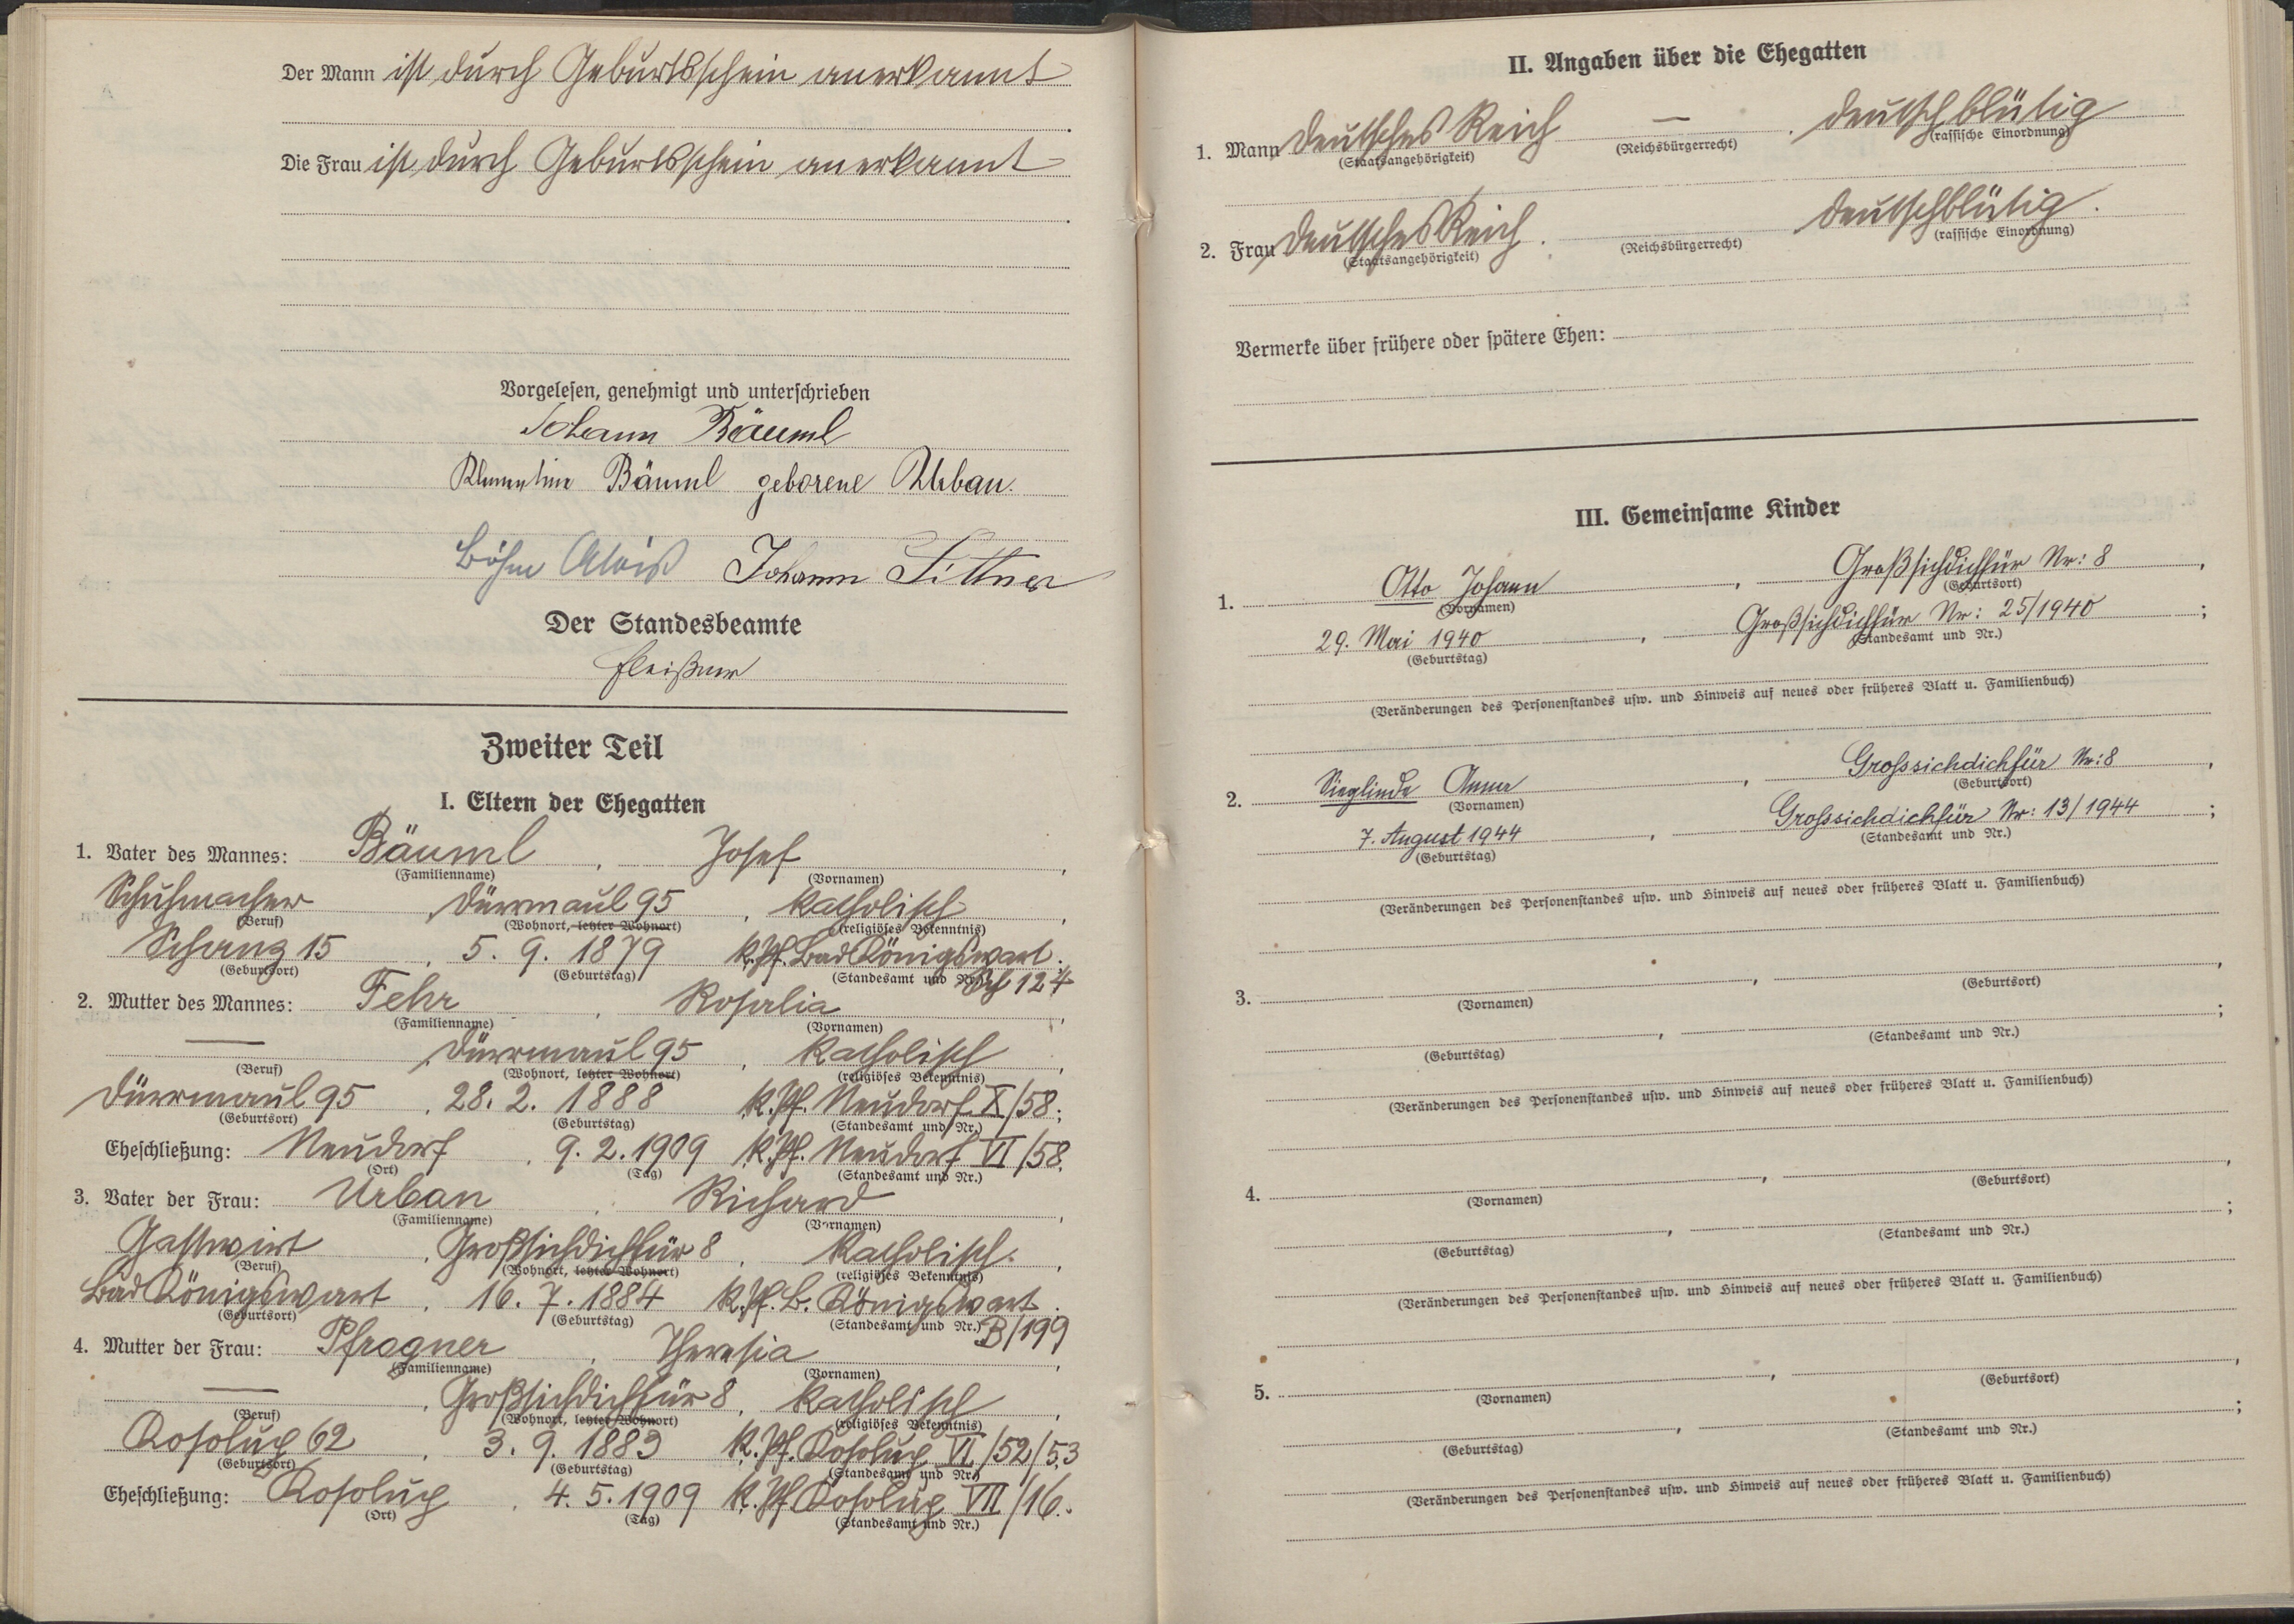 Der Mann ist durch Geburtsschein anerkannt
Die Frau ist durch Geburtsschein anerkannt
Vorgelesen, genehmigt und unterschrieben
Johann Bäuml
Klementine Bäuml geborene Urban.
Böhm Alois Johann Sittner
Der Standesbeamte
Fleißner
Zweiter Teil
I. Eltern der Ehegatten
1. Vater des Mannes: Bäuml, Josef,
(Familienname) (Vornamen)
Schuhmacher, Dürrmaul 95, katholisch,
(Beruf) (Wohnort, letzter Wohnort) (religiöses Bekenntnis)
Schanz 15, 5. 9. 1879 K. Pf. Bad Königswart;
(Geburtsort) (Geburtstag) (Standesamt und Nr.) 124
2. Mutter des Mannes: Fehr, Rosalia,
(Familienname) (Vornamen)
—, Dürrmaul 95, katholisch,
(Beruf) (Wohnort, letzter Wohnort) (religiöses Bekenntnis)
Dürrmaul 95, 28. 2. 1888 K. Pf. Neudorf X/58;
(Geburtsort) (Geburtstag) (Standesamt und Nr.)
Eheschließung: Neudorf, 9. 2. 1909 K. Pf. Neudorf VI/58.
(Ort) (Tag) (Standesamt und Nr.)
3. Vater der Frau: Urban, Richard,
(Familienname) (Vornamen)
Gastwirt, Großsichdichfür 8, katholisch,
(Beruf) (Wohnort, letzter Wohnort) (religiöses Bekenntnis)
Bad Königswart, 16. 7. 1884 K. Pf. B. Königswart;
(Geburtsort) (Geburtstag) (Standesamt und Nr.) B/199
4. Mutter der Frau: Pfrogner, Theresia,
(Familienname) (Vornamen)
—, Großsichdichfür 8, katholisch,
(Beruf) (Wohnort, letzter Wohnort) (religiöses Bekenntnis)
Kosolup 62, 3. 9. 1883 K. Pf. Kosolup VI/52/53
(Geburtsort) (Geburtstag) (Standesamt und Nr.)
Eheschließung: Kosolup, 4. 5. 1909 K. Pf. Kosolup VII/16.
(Ort) (Tag) (Standesamt und Nr.)
II. Angaben über die Ehegatten
1. Mann Deutsches Reich — deutschblütig
(Staatsangehörigkeit) (Reichsbürgerrecht) (rassische Einordnung)
2. Frau Deutsches Reich. deutschblütig.
(Staatsangehörigkeit) (Reichsbürgerrecht) (rassische Einordnung)
Vermerke über frühere oder spätere Ehen:
III. Gemeinsame Kinder
1. Otto Johann, Großsichdichfür Nr: 8,
(Vornamen) (Geburtsort)
29. Mai 1940, Großsichdichfür Nr: 25/1940;
(Geburtstag) (Standesamt und Nr.)
(Veränderungen des Personenstandes usw. und Hinweis auf neues oder früheres Blatt u. Familienbuch)
2. Sieglinde Anna, Grosssichdichfür Nr: 8,
(Vornamen) (Geburtsort)
7. August 1944, Grosssichdichfür Nr: 13/1944;
(Geburtstag) (Standesamt und Nr.)
(Veränderungen des Personenstandes usw. und Hinweis auf neues oder früheres Blatt u. Familienbuch)
3. , ,
(Vornamen) (Geburtsort)
, ;
(Geburtstag) (Standesamt und Nr.)
(Veränderungen des Personenstandes usw. und Hinweis auf neues oder früheres Blatt u. Familienbuch)
4. , ,
(Vornamen) (Geburtsort)
, ;
(Geburtstag) (Standesamt und Nr.)
(Veränderungen des Personenstandes usw. und Hinweis auf neues oder früheres Blatt u. Familienbuch)
5. , ,
(Vornamen) (Geburtsort)
, ;
(Geburtstag) (Standesamt und Nr.)
(Veränderungen des Personenstandes usw. und Hinweis auf neues oder früheres Blatt u. Familienbuch)